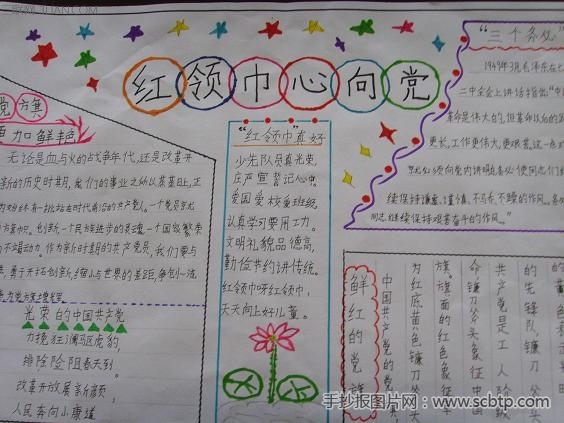 红领巾心向党
党旗
更加鲜艳
无论是血与火的战争年代,还是改革开
新的历史时期,我们的事业之所以蒸蒸日上,正
因为始终有一批站在时代前沿的共产党人。一个党员就
方案中只。创新,一个民族进步的灵魂,一个国家繁荣
作为新时期的共产党员,我们要与
光荣的中国共产党
力挽狂澜驱虎豹,
排除险阻春天到。
改革开放展新颜,
人民奔向小康道
"红领巾"真好
少先队员真光荣,
庄严宣誓记心中。
爱国爱校爱班级,
认真学习要用工。
文明礼貌品德高,
勤俭节约讲传统。
红领巾呀红领巾,
天天向上好儿童。
"三个务必"
1949年3月毛泽东在七
三中全会上讲话指出"中
革命是伟大的,但革命以后的路
更长,工作更伟大,更艰苦,这一点
就必须向党内讲明白务必使同志们继
续保持谦虚、谨慎、不骄、不躁的作风。务必
同志继续保持艰苦奋斗的作风。"
鲜红的党旗
中国共产党的党
为红底黄色镰刀
旗。旗面的红色象征革
命镰刀斧头象征中国
共产党是工人阶级
的先锋队,镰刀
手抄报图片网:www.scbtp.com